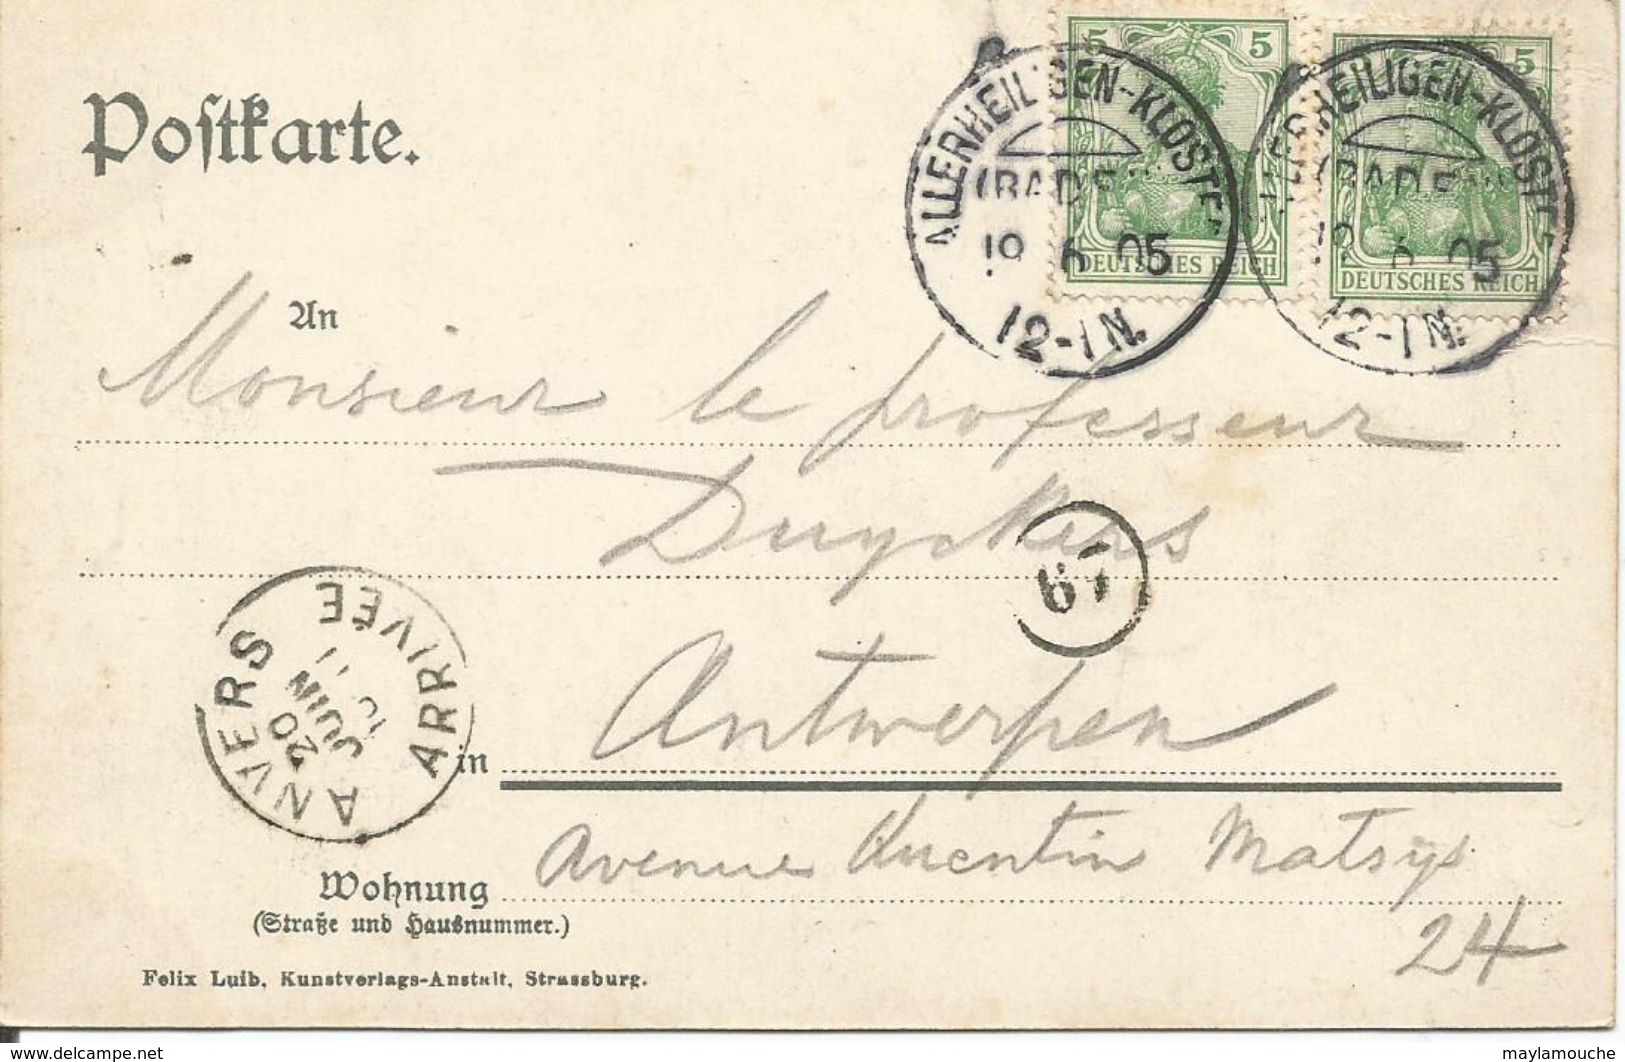 Postkarte.
5
5
DEUTSCHES REICH
DEUTSCHES REICH
ALLERHEILIGEN-KLOSTER
(BADEN
6 05
12-1N.
HEILIGEN-KLOSTE
(BADE
6 05
12-1N.
An
Monsieur le professeur
Duyckers
67
ANVERS
ARRIVÉE
20
JUIN
in
Antwerpen
Avenue Quentin Matsys
Wohnung
(Straße und Hausnummer.)
24
Felix Luib, Kunstverlags-Anstalt, Strassburg.
www.delcampe.net
maylamouche